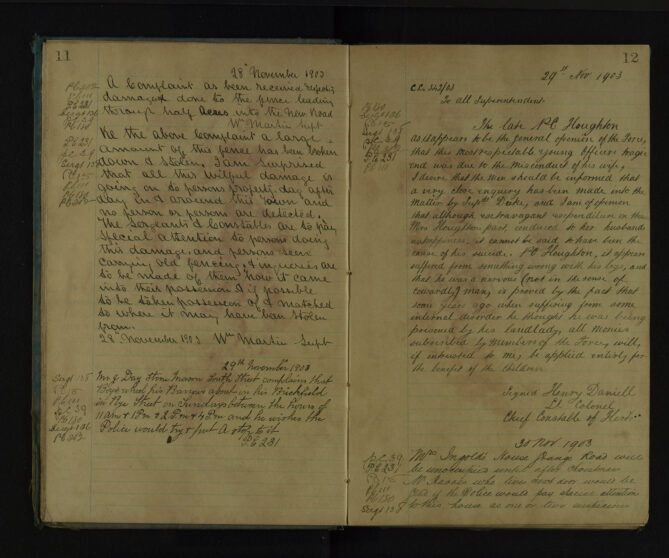 11
28 November 1903
A Complaint as been received respectg
damaged done to the fence leading
through half Acres into the New Road
Wm Martin Supt
Re the above Complaint a large
amount of this fence has been broken
down & Stolen, I am surprised
that all this wilful damage is
going on to persons property day after
day in & around this Town and
no person or persons are detected.
The Sergeants & Constables are to pay
special attention to persons doing
this damage, and persons seen
carrying old fencing & inquiries are
to be made of them how it came
into their possession & if possible
to be taken possession of & matched
to where it may have been stolen
from.
28 November 1903 Wm Martin Supt
29th November 1903
Mr J. Day Stone Mason South Street complains that
Boys wheel his Barrows about in his Brickfield
in Rye Street on Sundays between the hours of
11 am & 1 Pm & 2 Pm & 4 Pm and he wishes the
Police would try & put A stop to it
PC 231
12
29th Nov 1903
C.C. 342/03
To all Superintendents
The late PC Houghton
as it appears to be the general opinion of the Force,
that this most respectable young Officers tragic
end was due to the misconduct of his wife,
I desire that the Men should be informed that
a very close enquiry has been made into the
Matter by Supt and I am of opinion
that although extravagant expenditure on the
Mrs Houghton part, conduced to her husbands
unhappiness, it cannot be said to have been the
cause of his suicide. PC Houghton, it appears
suffered from something wrong with his legs, and
that he was a nervous (not in the sense of
cowardly) man, is proved by the fact that
some years ago when suffering from some
internal disorder he thought he was being
poisoned by his landlady, all monies
subscribed by Members of the Force, will,
if intrusted to me, be applied entirely for
the benefit of the children.
Signed Henry Daniell
Lt Colonel
Chief Constable of Herts
30 Nov 1903
Mrs Ingolds House Grange Road will
be unoccupied until after Christmas
Mr who lives next door would be
glad if the Police would pay special attention
to this house as one or two suspicious